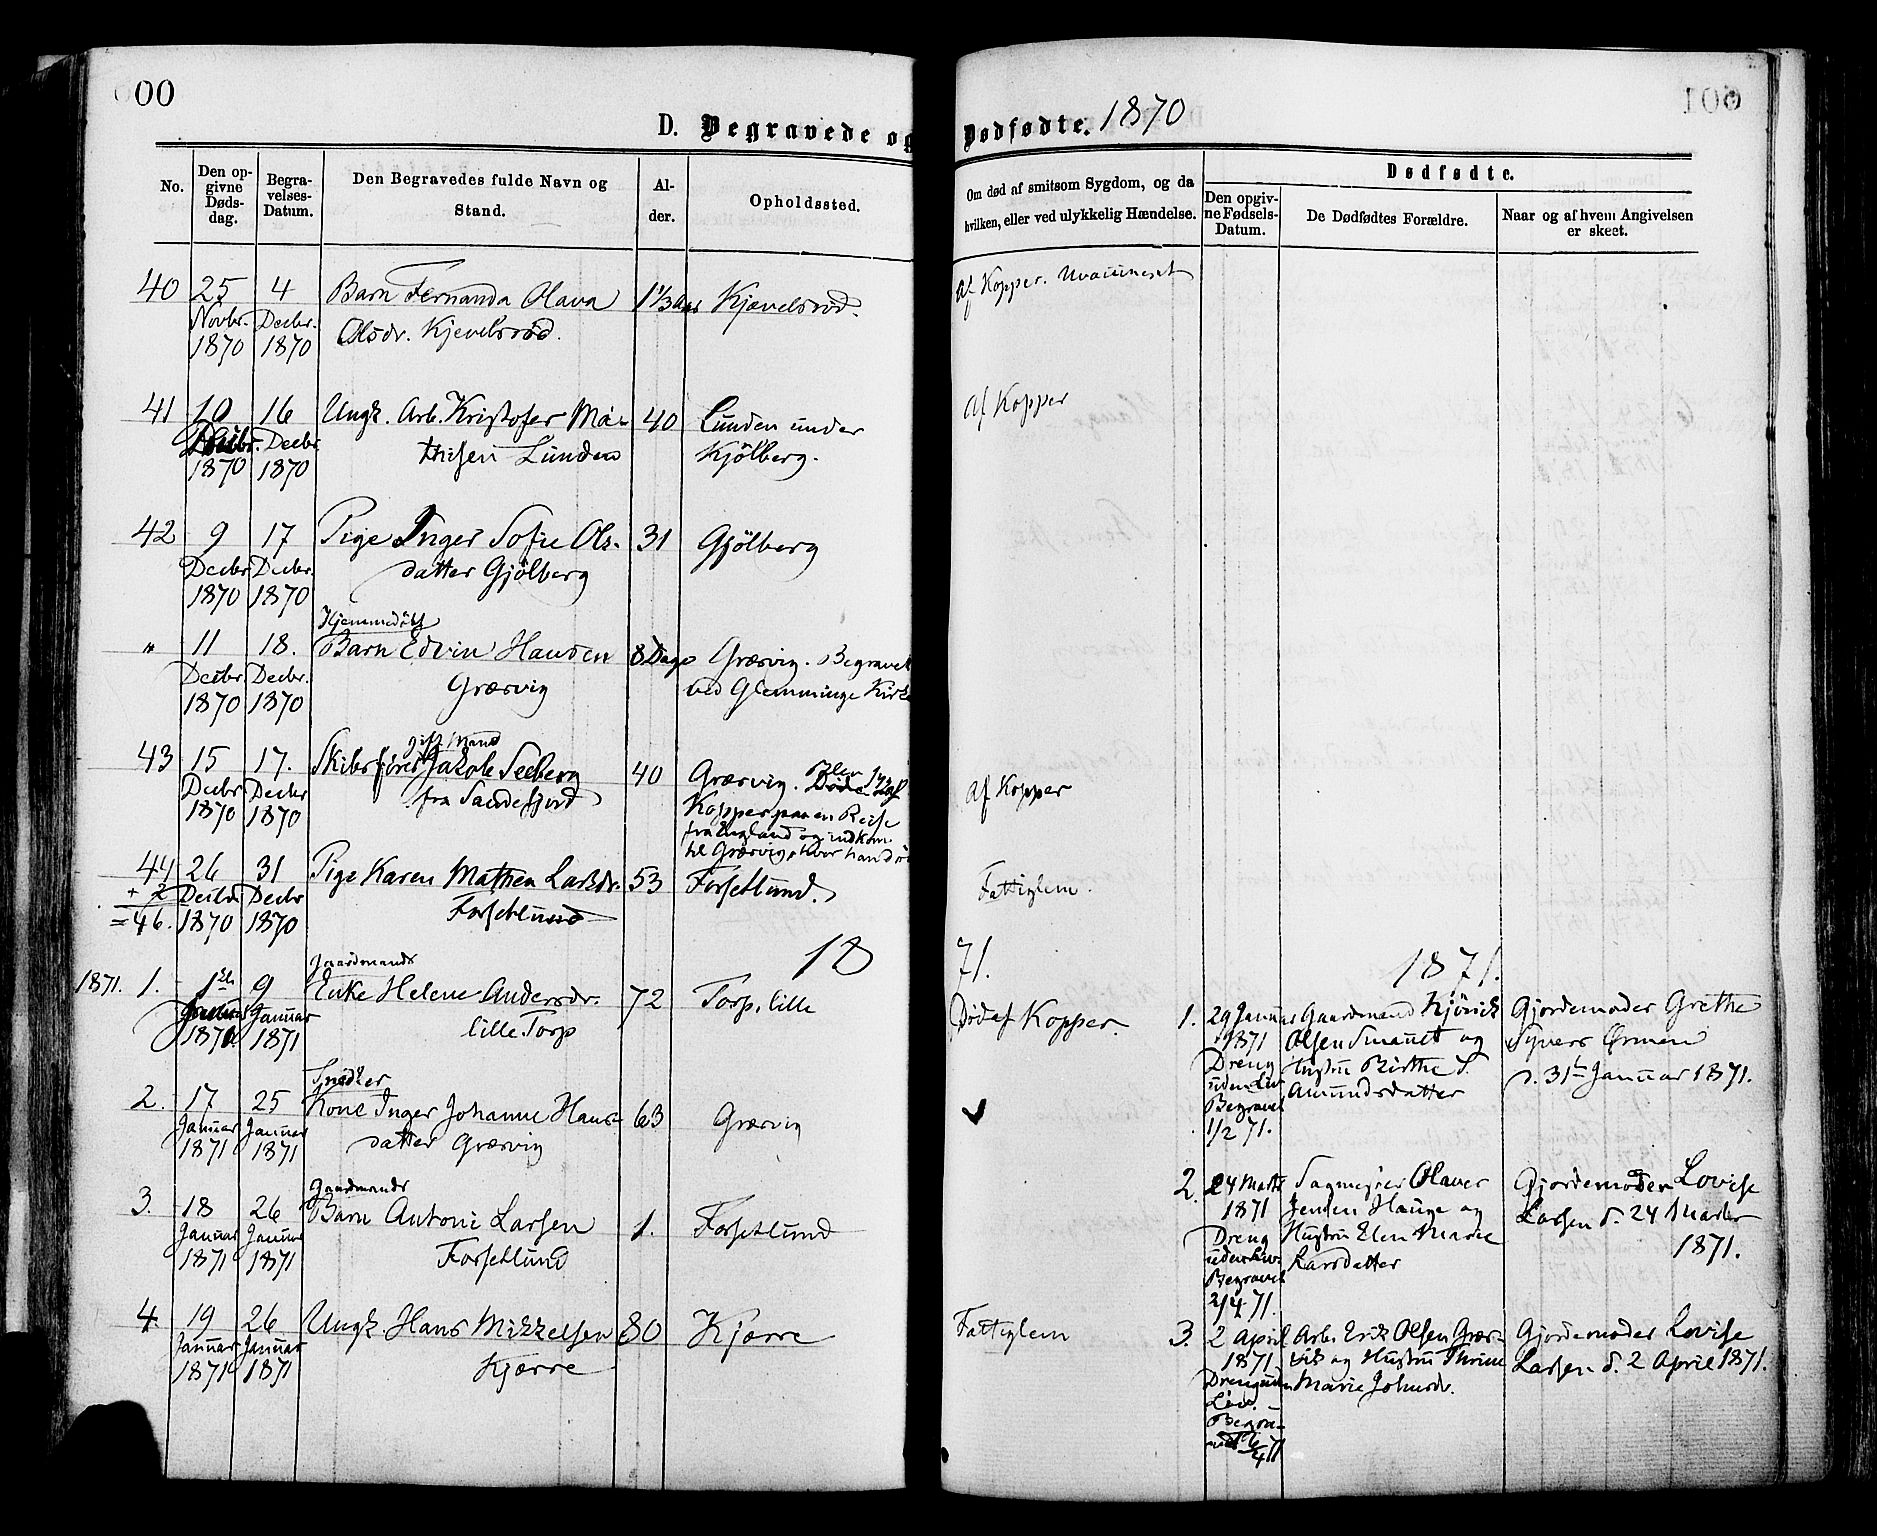 00
D. Begravede og
No.
Den op-
givne
Døds-
dag.
Begra-
velses-
Datum.
Den Begravedes fulde Navn og
Stand.
Al-
der.
Opholdssted.
40 25 4 Barn Fernanda Olava 1 1/3 Aar Kjævelsrød.
Novbr. Decbr. Olsdr. Kjevelsrød.
1870 1870
41 10 16 Ungk. Arb. Kristofer Ma- 40 Lunden under
Decbr. Decbr thisen Lunden Kjölberg.
1870 1870
42 9 17 Pige Inger Sofie Ols- 31 Gjölberg
Decbr Decbr. datter Gjölberg
1870 1870
Hjemmedöbt
" 11 18. Barn Edvin Hansen 8 Dage Græsvig. Begravet
Decbr Decbr. Græsvig ved Glemminge Kirke
1870 1870
gift Mand
43 15 17. Skibsförer Jakob Seeberg 40 Græsvig. Blev syg af
Decbr Decbr fra Sandefjord Kopper paa en Reise
1870 1870 fra England og indkom
til Græsvig, hvor han
44 26 31 Pige Karen Mathea Larsdr. 53 Forsetlund.
+ 2 Decbr Decbr Forsetlund
= 46. 1870 1870
18
Gaardmands
1871. 1. 1ste 9 Enke Helene Andersdr. 72 Torp, lille
Januar Januar lille Torp
1871 1871
Snedker
2. 17 25 Kone Inger Johanne Hans- 63 Græsvig
Januar Januar datter Græsvig
1871 1871
Gaardmands
3. 18 26 Barn Antoni Larsen 1. Forsetlund
Januar Januar Forsetlund
1871 1871
4. 19 26 Ungk Hans Mikkelsen 80 Kjærre
Januar Januar Kjærre
1871 1871
Dødfødte. 1870
Om død af smitsom Sygdom, og da
hvilken, eller ved ulykkelig Hændelse.
Dødfødte.
Den opgiv-
ne Fødsels-
Datum.
De Dødfødtes Forældre.
Naar og af hvem Angivelsen
er skeet.
Af Kopper. Uvaccineret
Af Kopper
Af Kopper
Fattiglem.
71. 1871.
Död af Kopper.
1. 29 Januar Gaardmand Gjördemoder Grethe
1871 Olsen Smauet og Syvers Ørmen
Dreng Hustru Birthe S. d. 31te Januar 1871.
uden Liv Amundsdatter
Begravet
1/2 71.
2. 24 Marts Sagmester Olaves Gjordemoder Lovise
1871 Jensen Hauge og Larsen d. 24 Marts
Dreng Hustru Elen Marie 1871.
uden Liv. Larsdatter
Begravet
2/4 71.
Fattiglem
3. 2 April Arb. Erik Olsen Græs- Gjordemoder Lovise
1871. vik og Hustru Thrine Larsen d. 2 April 1871.
Dreng uden Marie Johnsdr.
Liv.
Begra-
vet